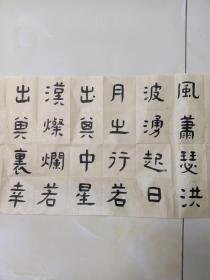 風蕭瑟洪
波湧起日
月之行若
出其中星
漢燦爛若
出其裏幸